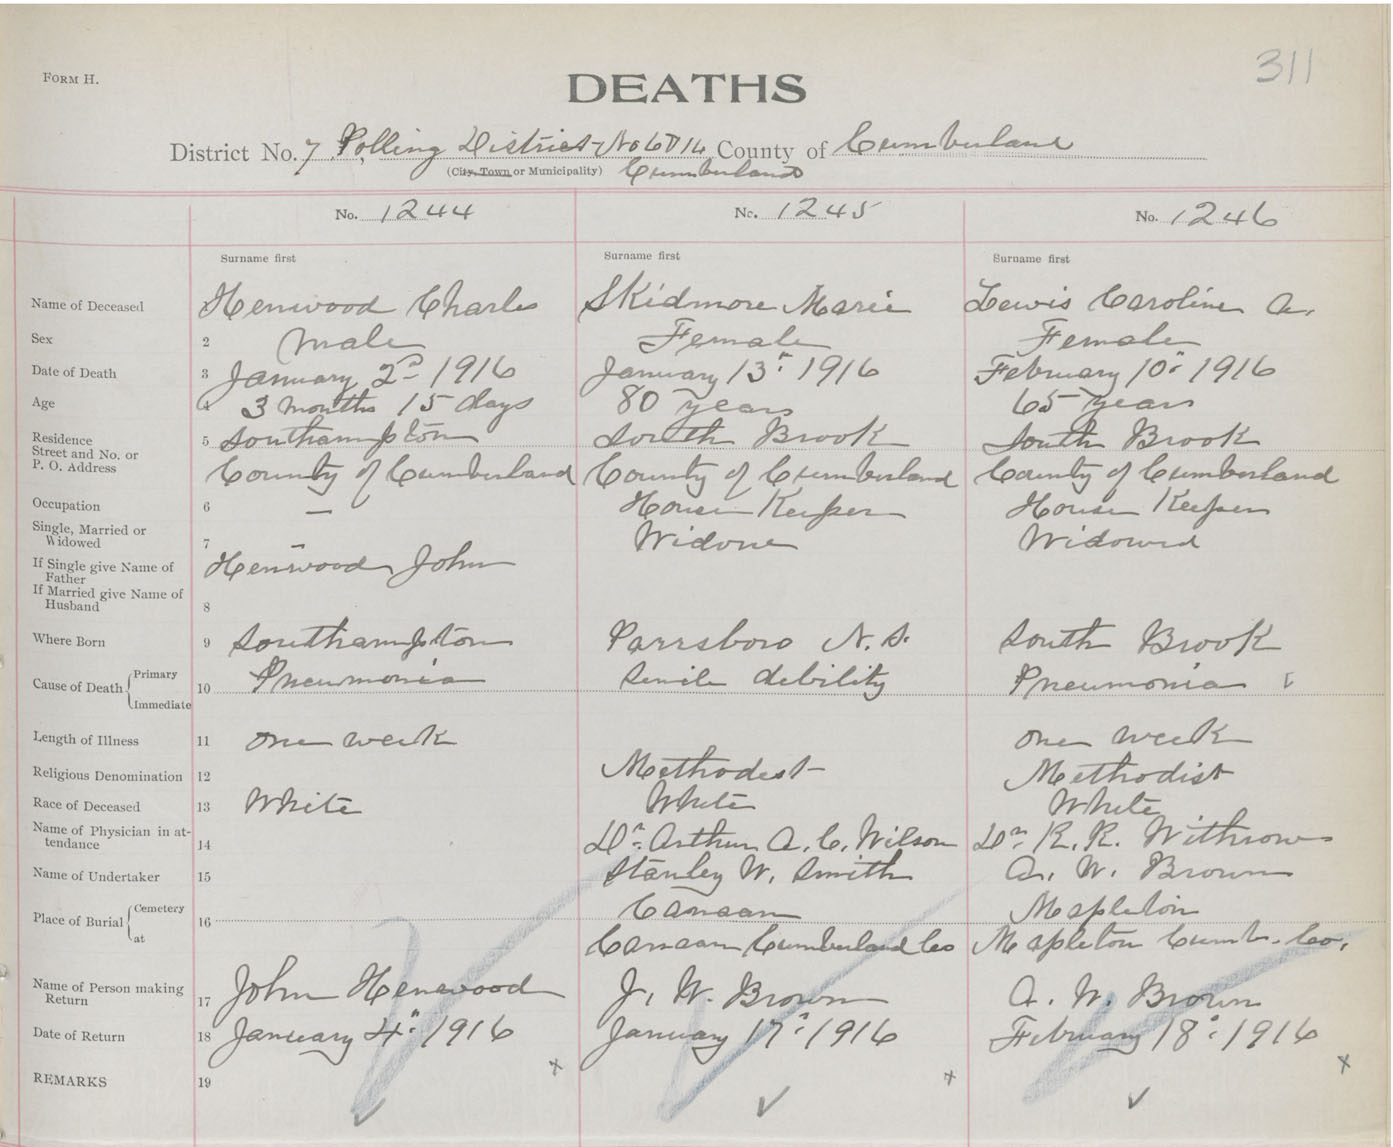 311
FORM H.
DEATHS
District No. 7 Polling District No 6 14 County of Cumberland
(City, Town or Municipality) Cumberland
No. 1244 No. 1245 No. 1246
Surname first Surname first Surname first
Name of Deceased Henwood Charles Skidmore Marie Lewis Caroline A.
Sex 2 Male Female Female
Date of Death 3 January 2nd 1916 January 13" 1916 February 10" 1916
Age 4 3 months 15 days 80 years 65 years
Residence 5 Southampton South Brook South Brook
Street and No. or
P. O. Address County of Cumberland County of Cumberland County of Cumberland
Occupation 6 — House Keeper House Keeper
Single, Married or
Widowed 7 Widow Widowed
If Single give Name of Henwood John
Father
If Married give Name of
Husband 8
Where Born 9 Southampton Parrsboro N. S. South Brook
Cause of Death Primary 10 Pneumonia Senile debility Pneumonia
Immediate
Length of Illness 11 one week one week
Religious Denomination 12 Methodest Methodist
Race of Deceased 13 White White White
Name of Physician in at-
tendance 14 Dr. Arthur A. C. Wilson Dr. R. R. Withrow
Name of Undertaker 15 Stanley W. Smith A. W. Brown
Place of Burial Cemetery 16 Canaan Mapleton
at Canaan Cumberland Co Mapleton Cumb. Co.
Name of Person making
Return 17 John Henwood J. W. Brown A. W. Brown
Date of Return 18 January 4" 1916 January 17" 1916 February 18" 1916
x x x
REMARKS 19